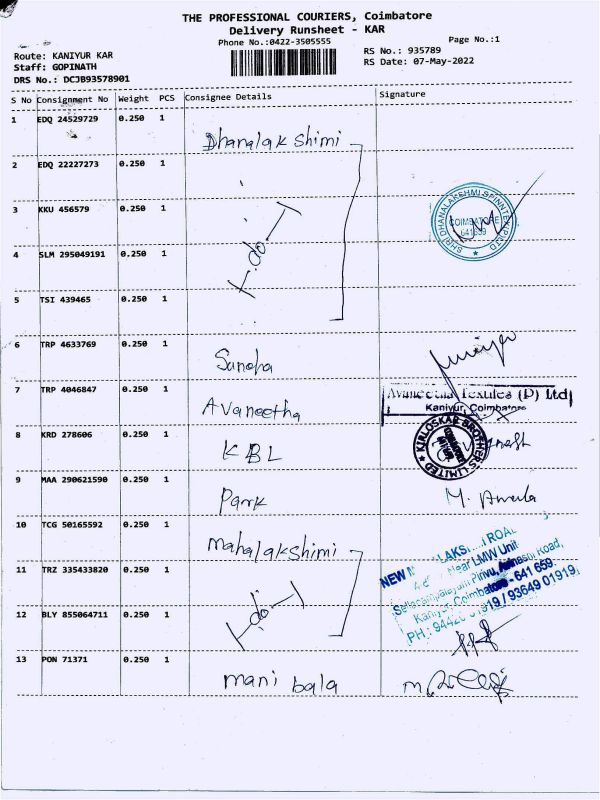 THE PROFESSIONAL COURIERS, Coimbatore
Delivery Runsheet - KAR
Phone No.:0422-3505555
Page No.:1
Route: KANIYUR KAR
RS No.: 935789
Staff: GOPINATH
RS Date: 07-May-2022
DRS No.: DCJB93578901
S No Consignment No Weight PCS Consignee Details Signature
1 EDQ 24529729 0.250 1 Dhanalakshimi
2 EDQ 22227273 0.250 1
3 KKU 456579 0.250 1
SHRI DHANALAKSHMI SPINNTEX (P) LTD
COIMBATORE
641659
4 SLM 295049191 0.250 1
5 TSI 439465 0.250 1
6 TRP 4633769 0.250 1
7 TRP 4046847 0.250 1 Avaneetha
Avaneetha Textiles (P) Ltd
Kaniyur, Coimbatore
8 KRD 278606 0.250 1 KBL
KIRLOSKAR BROTHERS LIMITED
9 MAA 290621590 0.250 1 Park
10 TCG 50165592 0.250 1 Mahalakshimi
NEW
Near LMW Unit
11 TRZ 335433820 0.250 1
Road,
Kaniyur, Coimbatore - 641 659.
12 BLY 855064711 0.250 1
PH : 1919 / 93649 01919
13 PON 71371 0.250 1 mani bala